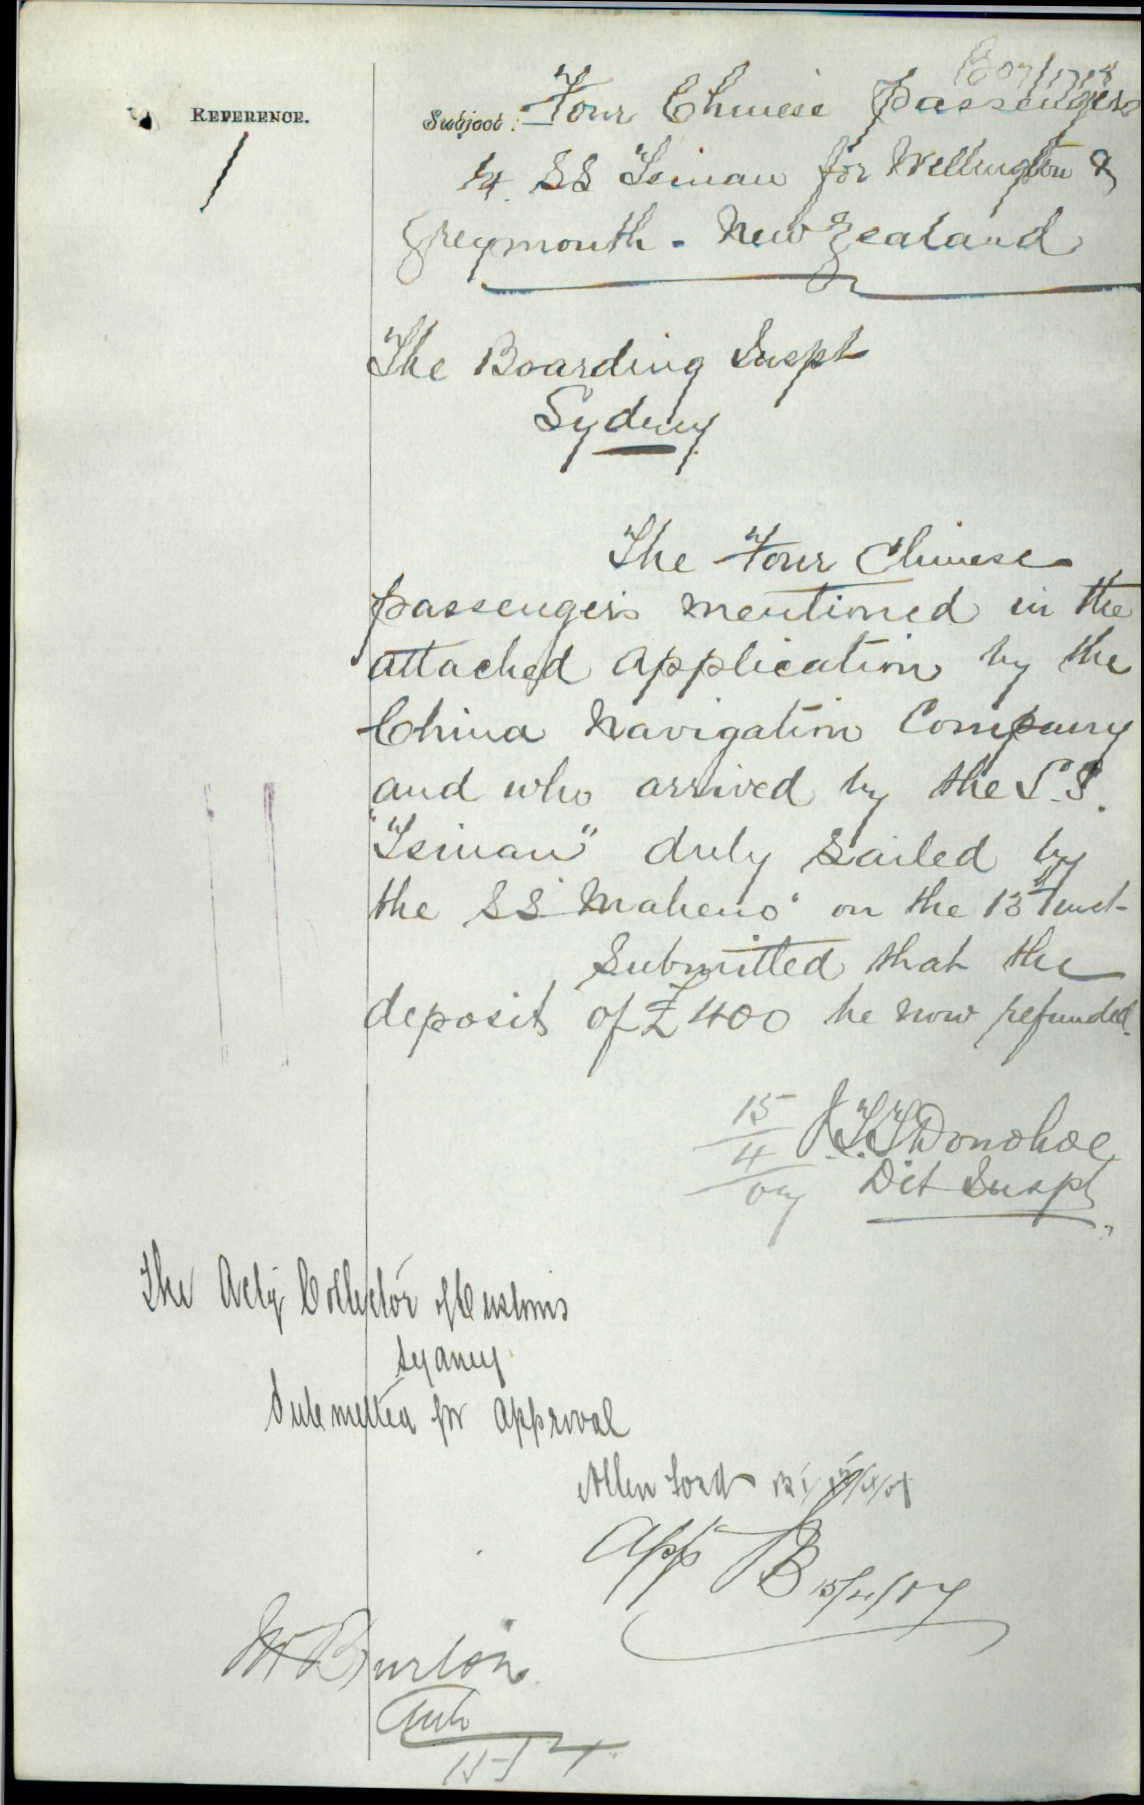 B07/1718
REFERENCE.
Subject: Four Chinese Passengers
SS Tsinan for Wellington &
Greymouth - New Zealand
The Boarding Inspt
Sydney
The Four Chinese
passengers mentioned in the
attached application by the
China Navigation Company
and who arrived by the S.S.
"Tsinan" duly sailed by
the SS "Maheno" on the 13th inst
Submitted that the
deposit of £400 be now refunded.
15/4/07 J.T.T. Donohoe
Det Inspt.
The Actg Collector of Customs
Sydney
Submitted for approval
App 15/4/07
Mr Burton
15/4